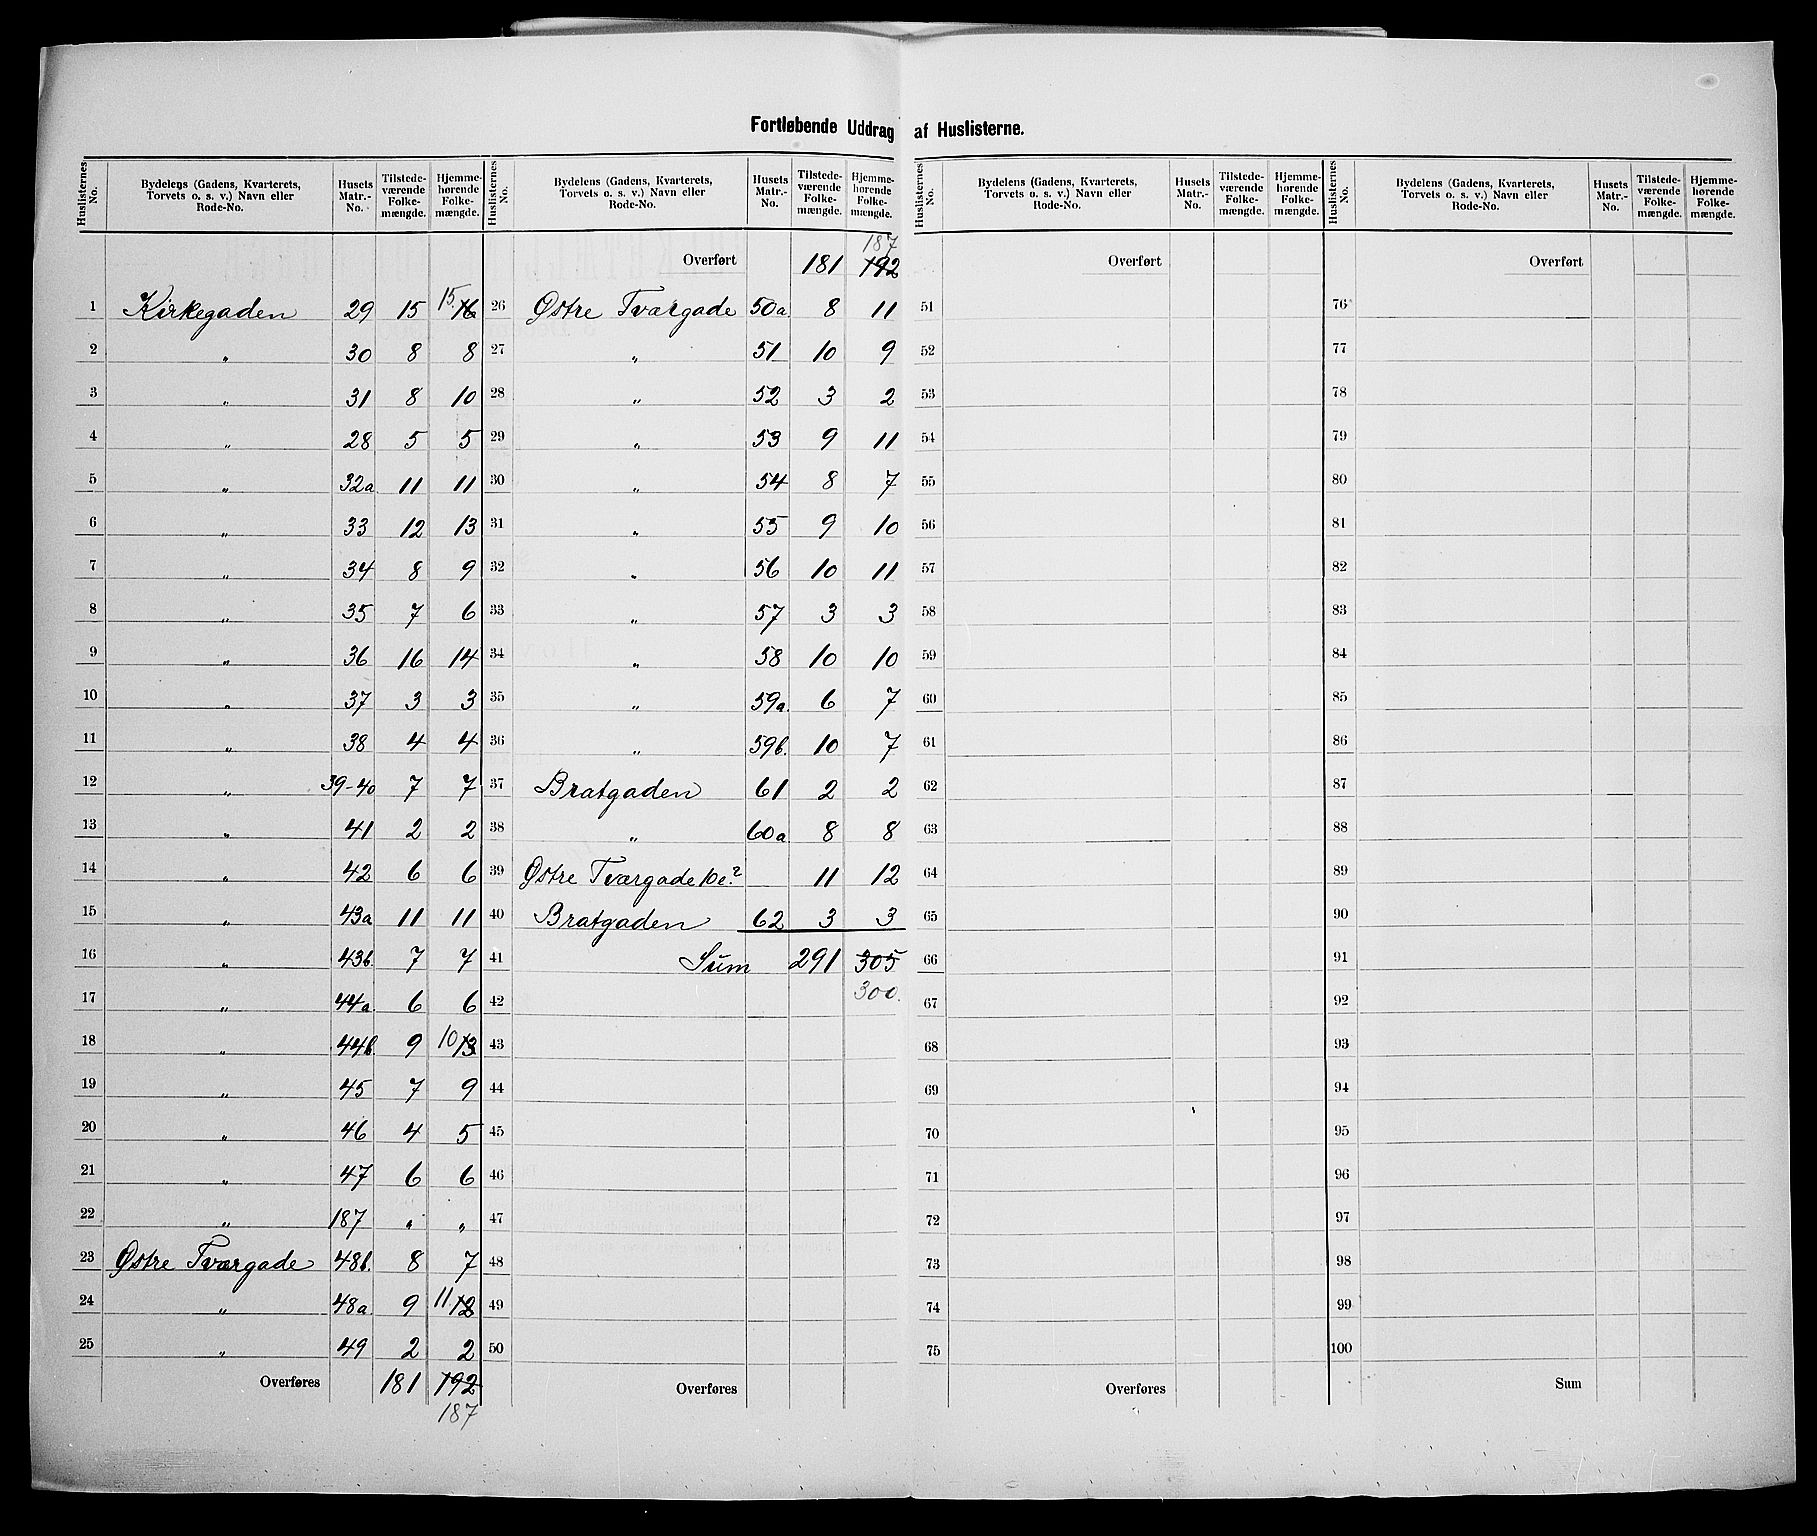 Fortløbende Uddrag af Huslisterne.
Huslisternes No. | Bydelens (Gadens, Kvarterets, Torvets o. s. v.) Navn eller Rode-No. | Husets Matr.-No. | Tilstedeværende Folkemængde. | Hjemmehørende Folkemængde.
1 Kirkegaden 29 15 15 16
2 „ 30 8 8
3 „ 31 8 10
4 „ 28 5 5
5 „ 32a. 11 11
6 „ 33 12 13
7 „ 34 8 9
8 „ 35 7 6
9 „ 36 16 14
10 „ 37 3 3
11 „ 38 4 4
12 „ 39-40 7 7
13 „ 41 2 2
14 „ 42 6 6
15 „ 43a 11 11
16 „ 43b. 7 7
17 „ 44a. 6 6
18 „ 44b. 9 10 13
19 „ 45 7 9
20 „ 46 4 5
21 „ 47 6 6
22 „ 187 „ „
23 Østre Tværgade 48b. 8 7
24 „ 48a. 9 11 12
25 „ 49 2 2
Overføres 181 192
187
Huslisternes No. | Bydelens (Gadens, Kvarterets, Torvets o. s. v.) Navn eller Rode-No. | Husets Matr.-No. | Tilstedeværende Folkemængde. | Hjemmehørende Folkemængde.
187
Overført 181 192
26 Østre Tværgade 50a. 8 11
27 „ 51 10 9
28 „ 52 3 2
29 „ 53 9 11
30 „ 54 8 7
31 „ 55 9 10
32 „ 56 10 11
33 „ 57 3 3
34 „ 58 10 10
35 „ 59a. 6 7
36 „ 59b. 10 7
37 Bratgaden 61 2 2
38 „ 60a. 8 8
39 Østre Tværgade 11 12
40 Bratgaden 62 3 3
41 Sum 291 305
42 300.
43
44
45
46
47
48
49
50
Overføres
Huslisternes No. | Bydelens (Gadens, Kvarterets, Torvets o. s. v.) Navn eller Rode-No. | Husets Matr.-No. | Tilstedeværende Folkemængde. | Hjemmehørende Folkemængde.
Overført
51
52
53
54
55
56
57
58
59
60
61
62
63
64
65
66
67
68
69
70
71
72
73
74
75
Overføres
Huslisternes No. | Bydelens (Gadens, Kvarterets, Torvets o. s. v.) Navn eller Rode-No. | Husets Matr.-No. | Tilstedeværende Folkemængde. | Hjemmehørende Folkemængde.
Overført
76
77
78
79
80
81
82
83
84
85
86
87
88
89
90
91
92
93
94
95
96
97
98
99
100
Sum